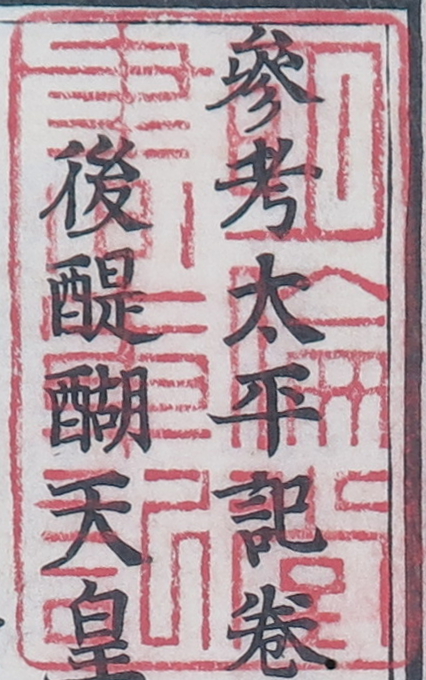 參考太平記卷
後醍醐天皇